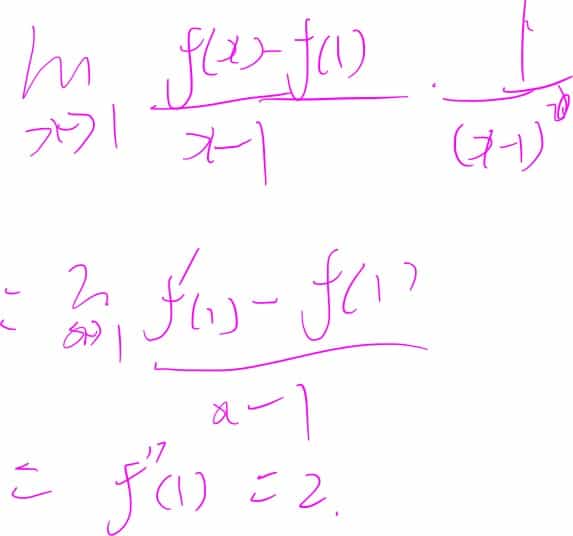 lim x→1 f(x)-f(1) / x-1 · 1 / (x-1)
= lim x→1 f'(1) - f(1) / x-1
= f''(1) = 2.